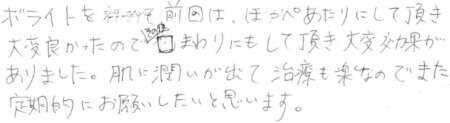 ボライトを 前回は、ほっぺあたりにして頂き
大変良かったので 今回は 口まわりにもして頂き大変効果が
ありました。肌に潤いが出て治療も楽なのでまた
定期的にお願いしたいと思います。